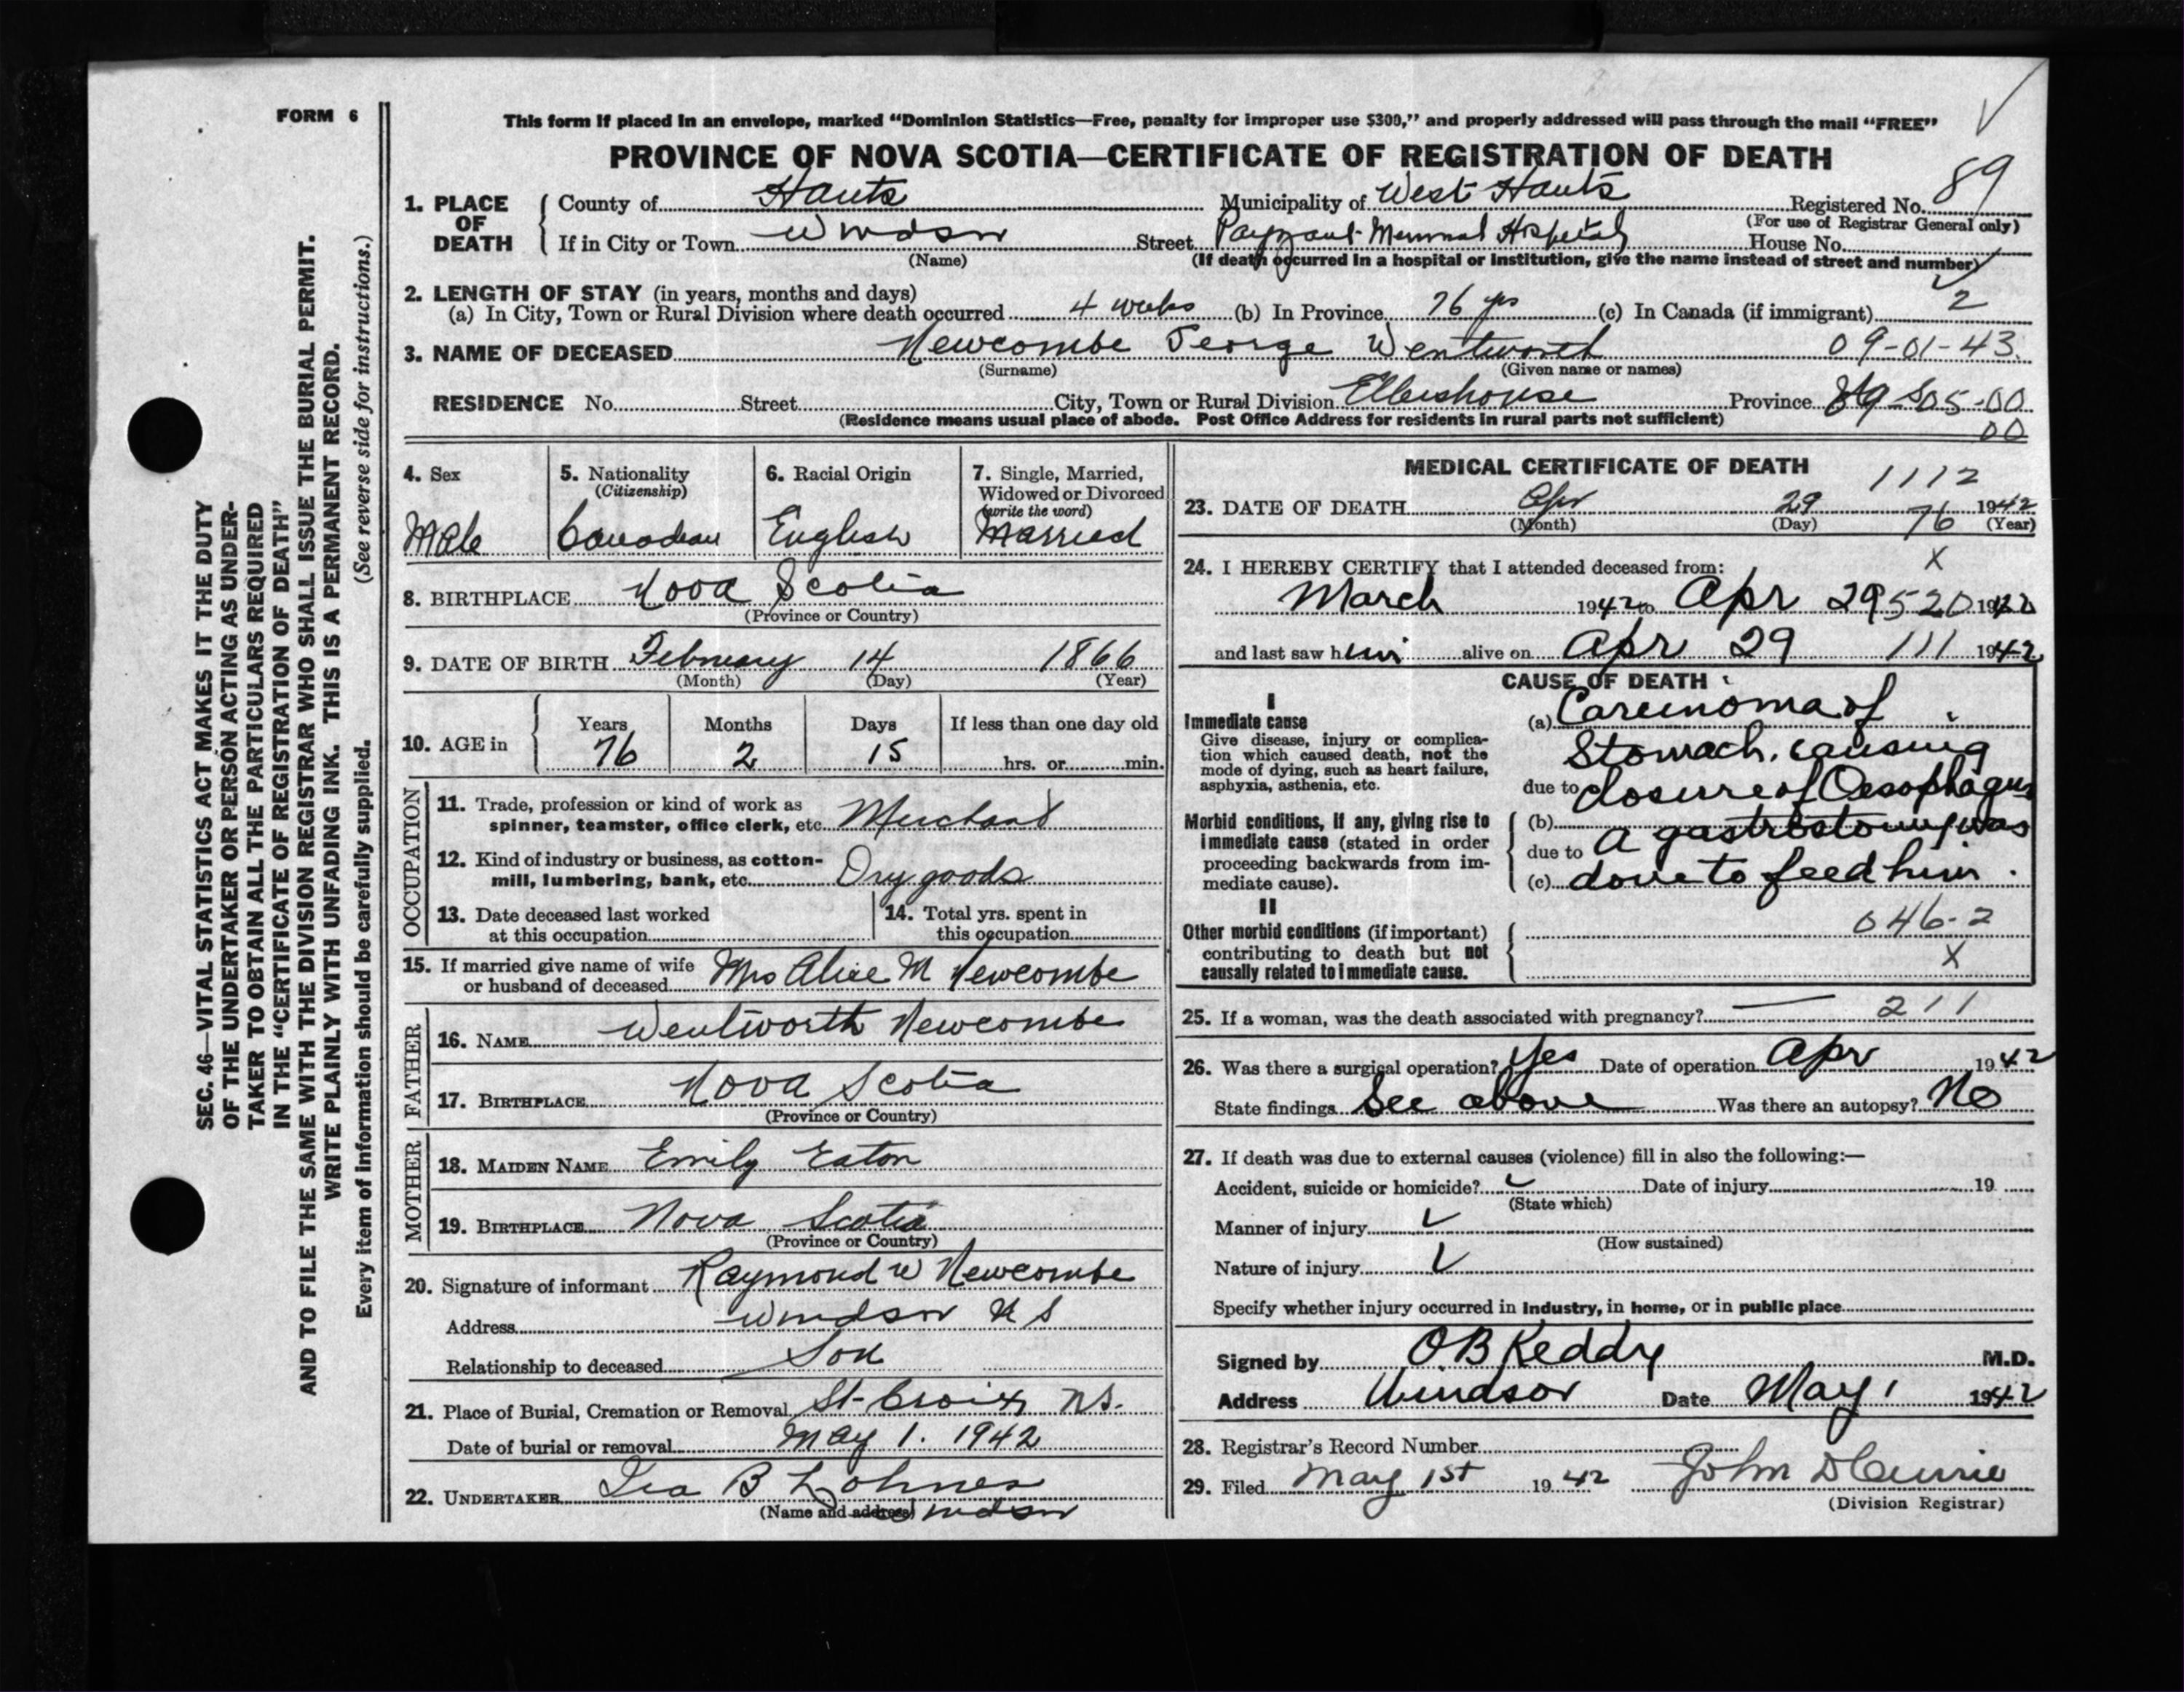 FORM 6
This form if placed in an envelope, marked "Dominion Statistics—Free, penalty for improper use $300," and properly addressed will pass through the mail "FREE"
PROVINCE OF NOVA SCOTIA—CERTIFICATE OF REGISTRATION OF DEATH
89
1. PLACE OF DEATH
County of Hants Municipality of West Hants Registered No.
(For use of Registrar General only)
If in City or Town Windsor Street Payzant Memorial Hospital House No.
(Name) (If death occurred in a hospital or institution, give the name instead of street and number)
2. LENGTH OF STAY (in years, months and days)
(a) In City, Town or Rural Division where death occurred 4 weeks (b) In Province 76 yrs (c) In Canada (if immigrant) 2
3. NAME OF DECEASED Newcombe George Wentworth 09-01-43
(Surname) (Given name or names)
RESIDENCE No. Street City, Town or Rural Division Ellershouse Province 05-00
00
(Residence means usual place of abode. Post Office Address for residents in rural parts not sufficient)
4. Sex
Male
5. Nationality
(Citizenship)
Canadian
6. Racial Origin
English
7. Single, Married,
Widowed or Divorced
(write the word)
Married
8. BIRTHPLACE Nova Scotia
(Province or Country)
9. DATE OF BIRTH February 14 1866
(Month) (Day) (Year)
10. AGE in
Years Months Days If less than one day old
76 2 15 hrs. or min.
OCCUPATION
11. Trade, profession or kind of work as
spinner, teamster, office clerk, etc. Merchant
12. Kind of industry or business, as cotton-
mill, lumbering, bank, etc. Dry goods
13. Date deceased last worked
at this occupation
14. Total yrs. spent in
this occupation
15. If married give name of wife
or husband of deceased Mrs Alice M Newcombe
FATHER
16. NAME Wentworth Newcombe
17. BIRTHPLACE Nova Scotia
(Province or Country)
MOTHER
18. MAIDEN NAME Emily Eaton
19. BIRTHPLACE Nova Scotia
(Province or Country)
20. Signature of informant Raymond W Newcombe
Address Windsor N S
Relationship to deceased Son
21. Place of Burial, Cremation or Removal St. Croix N.S.
Date of burial or removal May 1. 1942
22. UNDERTAKER Ira B Lohnes
(Name and address) Windsor
MEDICAL CERTIFICATE OF DEATH
1112
23. DATE OF DEATH Apr 29 1942
(Month) (Day) 76 (Year)
24. I HEREBY CERTIFY that I attended deceased from: X
March 1942 to Apr 29 520 1942
and last saw him alive on Apr 29 111 1942
CAUSE OF DEATH
I
Immediate cause
Give disease, injury or complica-
tion which caused death, not the
mode of dying, such as heart failure,
asphyxia, asthenia, etc.
(a) Carcinoma of
Stomach, causing
due to closure of Oesophagus
Morbid conditions, if any, giving rise to
immediate cause (stated in order
proceeding backwards from im-
mediate cause).
(b)
due to A gastrostomy was
(c) done to feed him.
II
Other morbid conditions (if important)
contributing to death but not
causally related to immediate cause.
046-2
X
25. If a woman, was the death associated with pregnancy? — 211
26. Was there a surgical operation? Yes Date of operation Apr 1942
State findings See above Was there an autopsy? No
27. If death was due to external causes (violence) fill in also the following:—
Accident, suicide or homicide? Date of injury 19
(State which)
Manner of injury
(How sustained)
Nature of injury
Specify whether injury occurred in industry, in home, or in public place
Signed by O.B Keddy M.D.
Address Windsor Date May 1 1942
28. Registrar's Record Number
29. Filed May 1st 1942 John D Currie
(Division Registrar)
SEC. 46—VITAL STATISTICS ACT MAKES IT THE DUTY
OF THE UNDERTAKER OR PERSON ACTING AS UNDER-
TAKER TO OBTAIN ALL THE PARTICULARS REQUIRED
IN THE "CERTIFICATE OF REGISTRATION OF DEATH"
AND TO FILE THE SAME WITH THE DIVISION REGISTRAR WHO SHALL ISSUE THE BURIAL PERMIT.
WRITE PLAINLY WITH UNFADING INK. THIS IS A PERMANENT RECORD.
Every item of information should be carefully supplied. (See reverse side for instructions.)